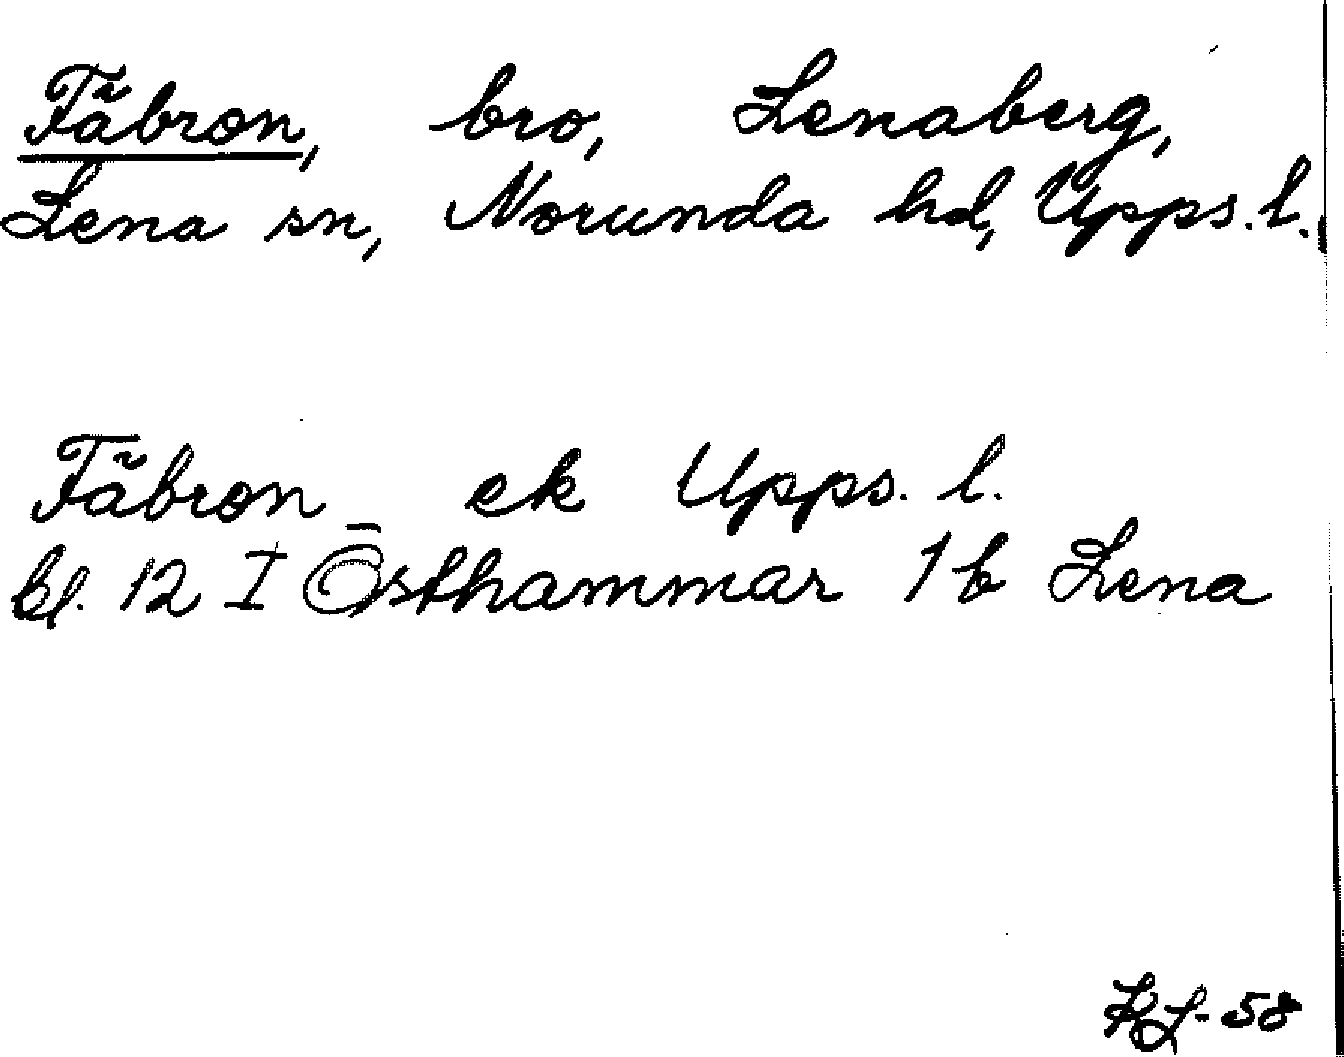 Fäbron, bro, Lenaberg,
Lena sn, Norunda hd, Upps. l.
Fäbron ek Upps. l.
bl. 12 I Östhammar 1 b Lena
KL-58